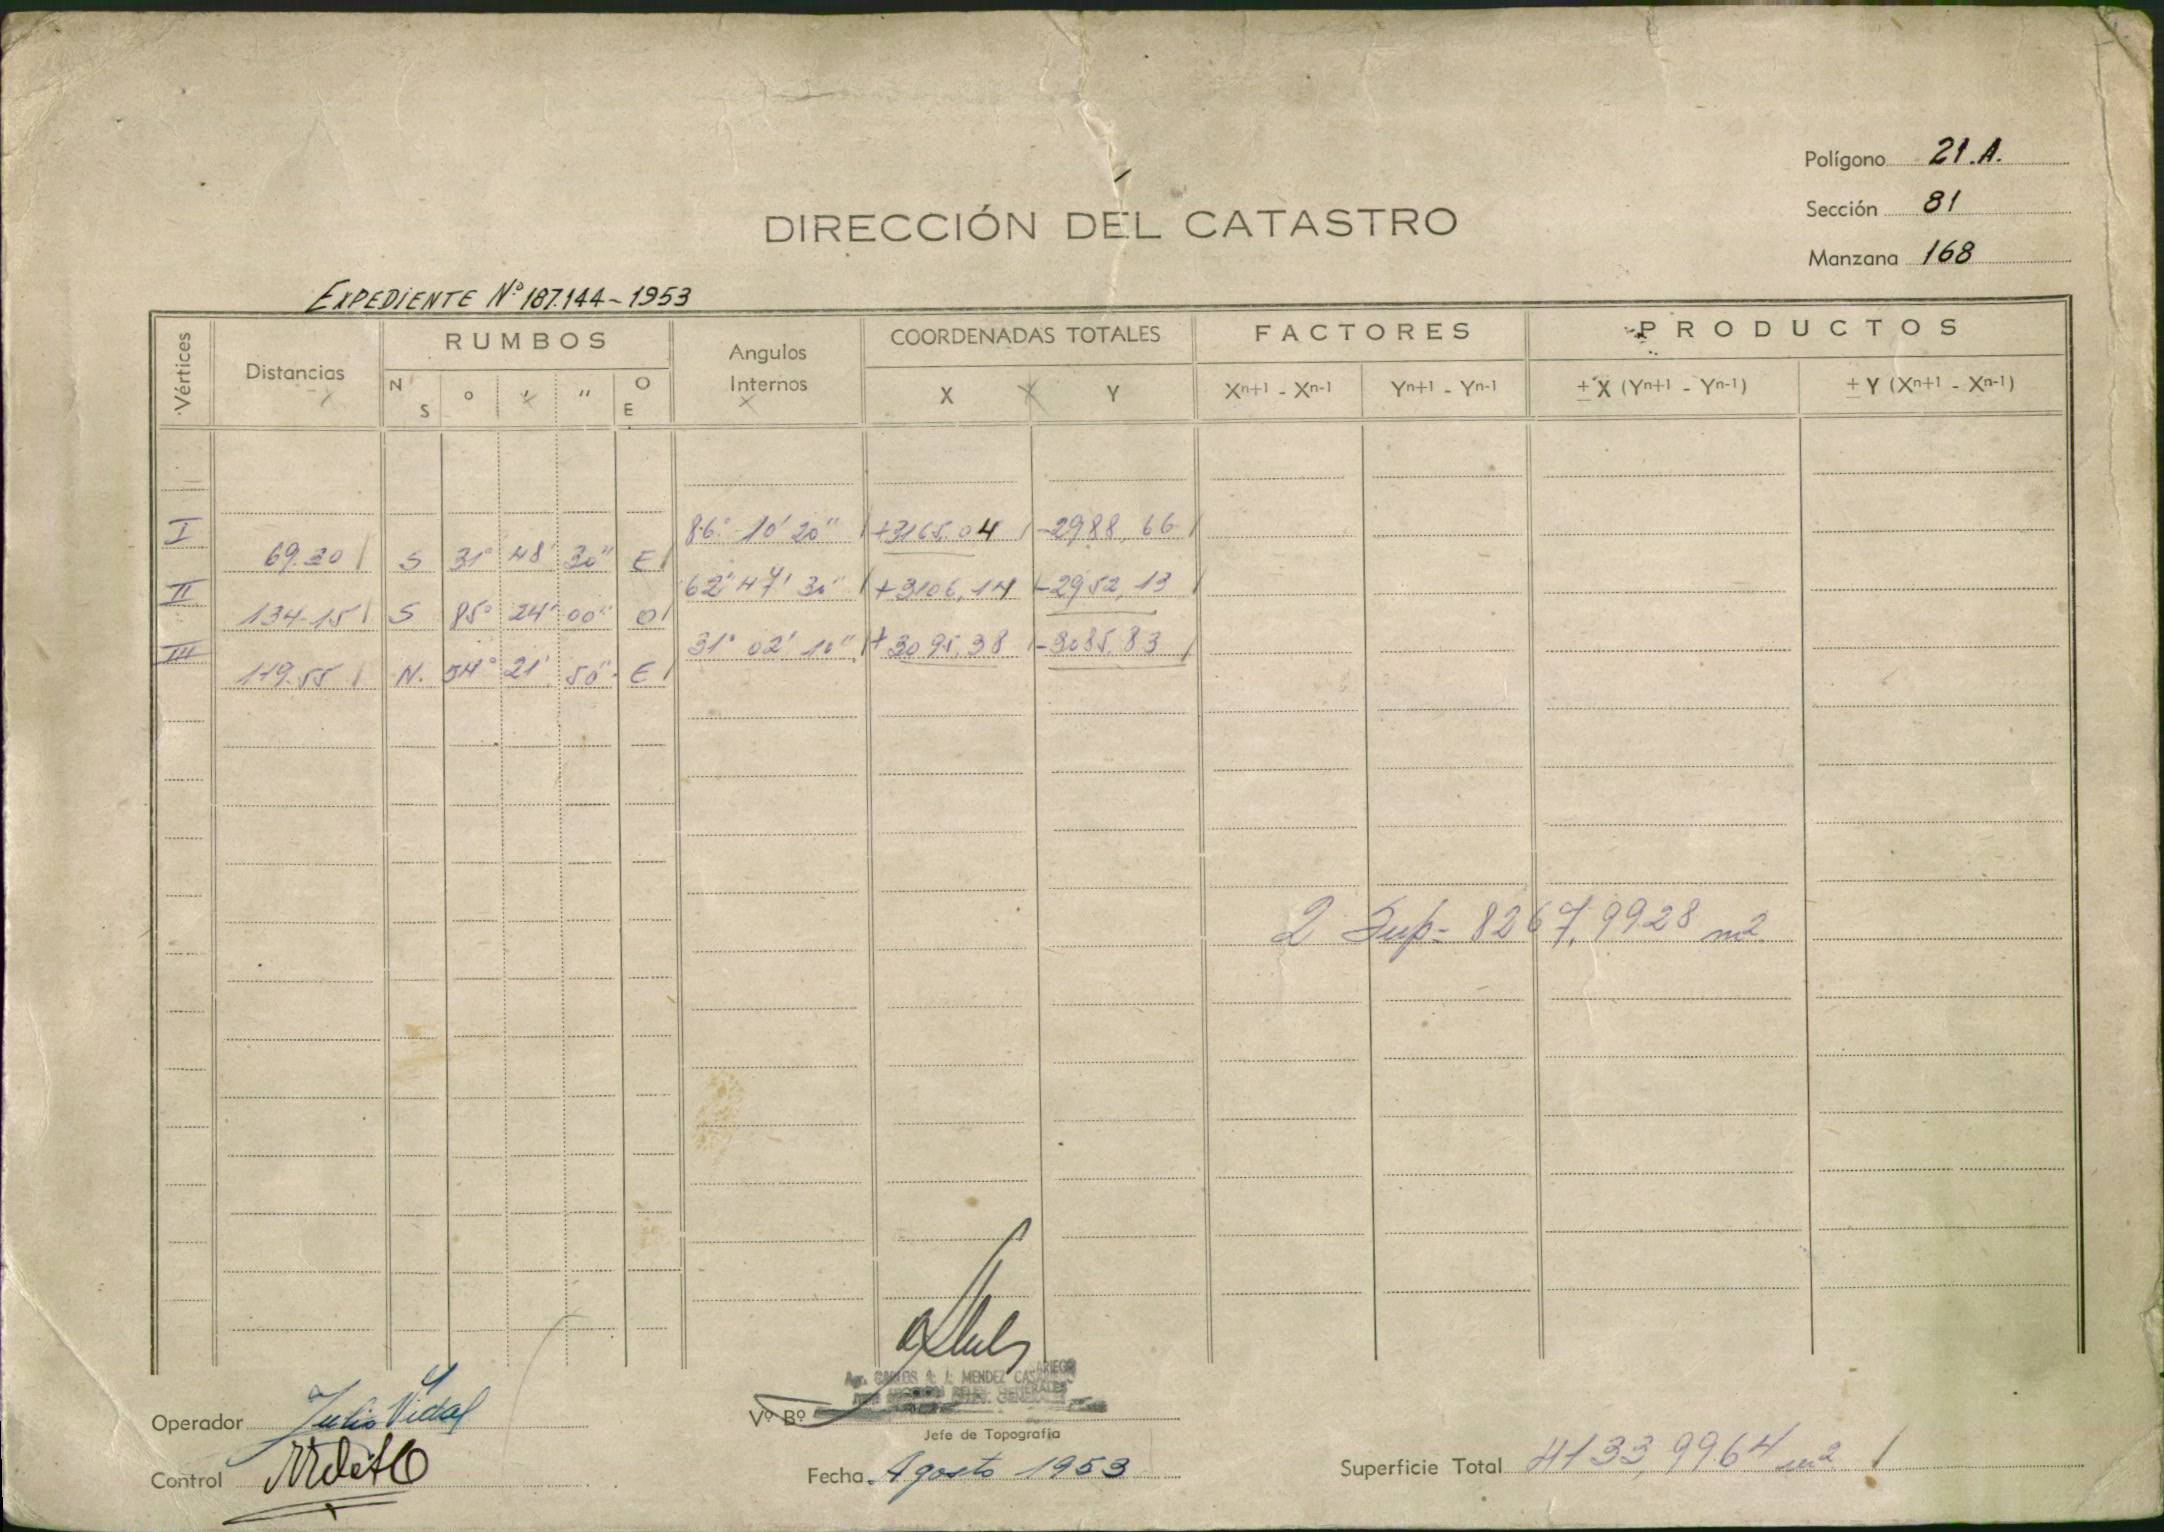 Polígono 21.A.
Sección 81
Manzana 168
DIRECCIÓN DEL CATASTRO
EXPEDIENTE Nº 187.144-1953
Vértices Distancias RUMBOS Angulos Internos COORDENADAS TOTALES FACTORES PRODUCTOS
N S ° ' " O E X Y Xn+1 - Xn-1 Yn+1 - Yn-1 ± X (Yn+1 - Yn-1) ± Y (Xn+1 - Xn-1)
I 86° 10' 20" +3165.04 -2988,66
69.30 S 31° 48' 30" E
II 62° 47' 30" +3106,14 -2952,13
134.15 S 85° 24' 00" O
III 31° 02' 10" +3095,38 -3085,83
119.55 N. 54° 21' 50" E
2 Sup- 8267,9928 m2.
Ag. CARLOS A. J. MENDEZ CASARIEGO
Operador Julio Vidal
Vº Bº
Jefe de Topografía
Control
Fecha Agosto 1953
Superficie Total 4133,9964 m2